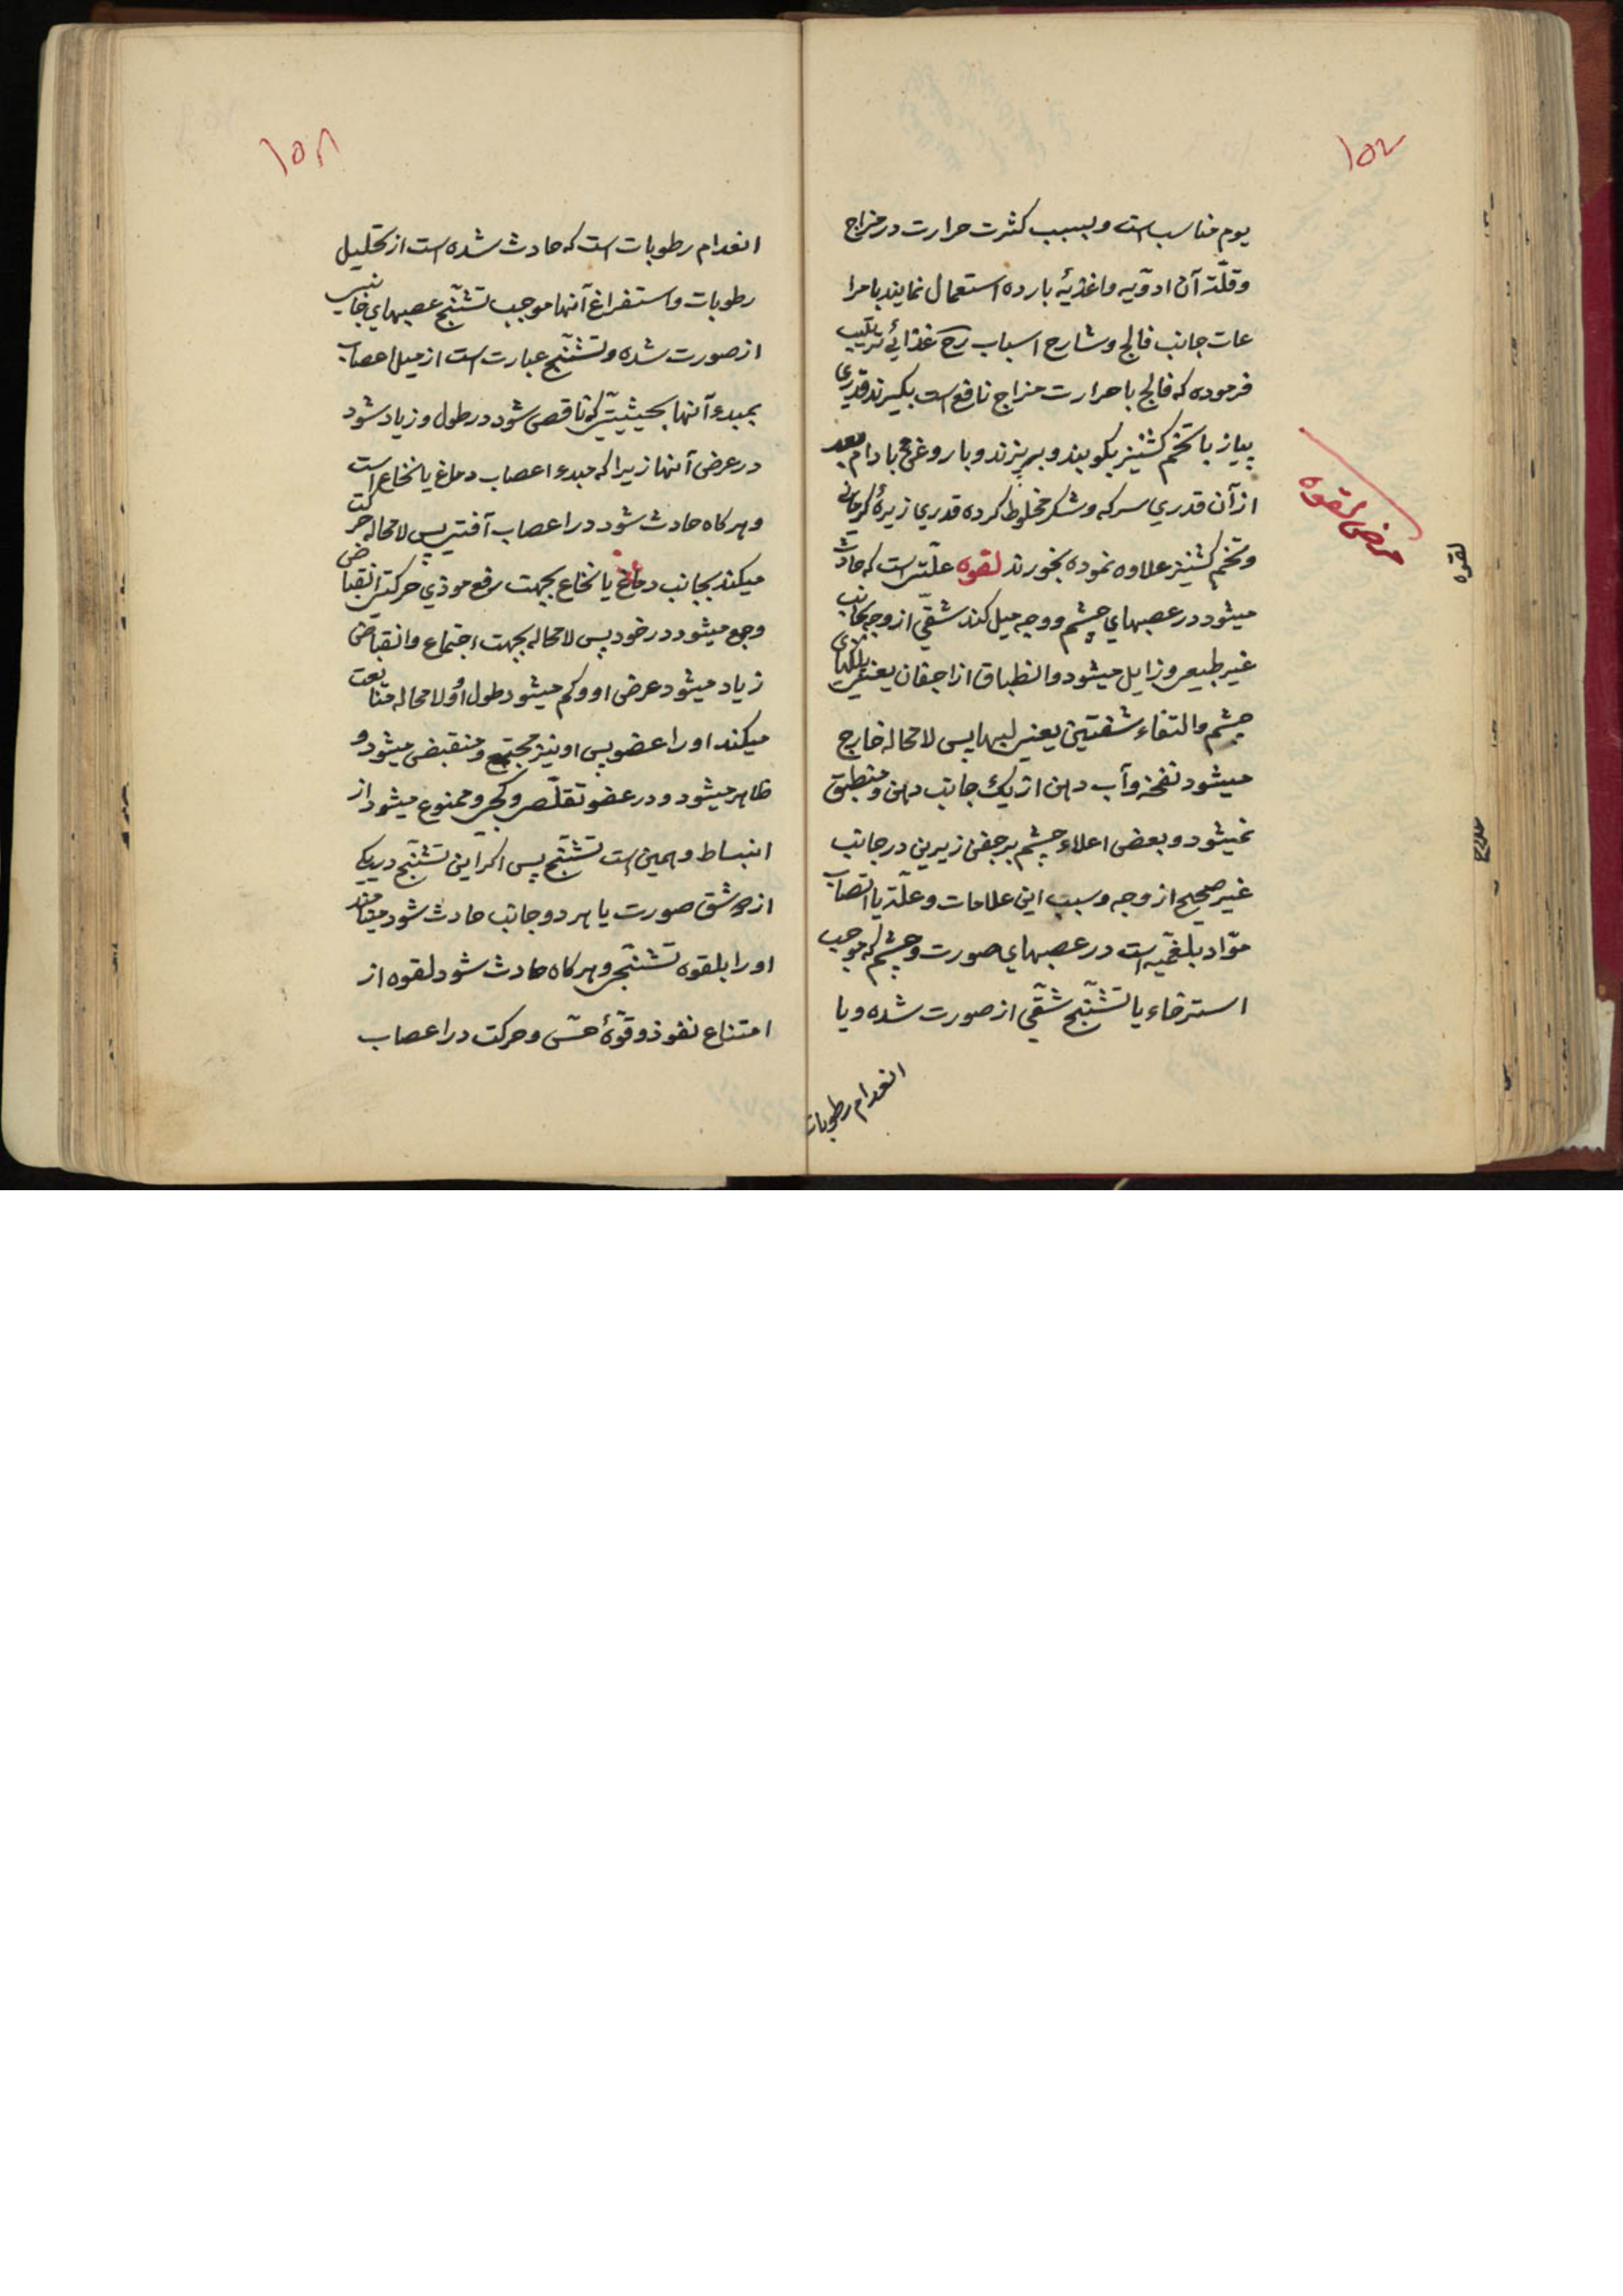 ۱۵۷
یوم مناسب است و بسبب کثرت حرارت در مزاج
و قلّة آن ادوّیه و اغذیهٔ بارده استعمال نمایند با مرا
عات جانب فالج و شارح اسباب رح غذائی ترتیب
فرموده که فالج با حرارت مزاج نافع است بکیرند قدری
پیاز با تخم کشنیز بکوبند و بپزند و با روغن بادام بعد
از آن قدری سرکه و شکر مخلوط کرده قدری زیرهٔ کرمانی
و تخم کشنیز علاوه نموده بخورند لقوه علّتی است که حادث
میشود در عصبهای چشم و وجه میل کند شقّی از وجه بجانب
غیر طبیعی و زایل میشود انطباق از اجفان یعنی پلکهای
چشم و التقاء شفتین یعنی لبها پس لا محاله خارج
میشود نفخه و آب دهن از یک جانب دهن و منطبق
نمیشود و بعضی اعلاء چشم بر جفن زیرین در جانب
غیر صحیح از وجه و سبب این علامات و علّة یا انصباب
موّاد بلغمّیه است در عصبهای صورت و چشم که موجب
استرخاء یا تشنّج شقّی از صورت شده و یا
انعدام رطوبات
مرض لقوه
لقوه
علاج
۱۵۸
انعدام رطوبات است که حادث شده است از تحلیل
رطوبات و استفراغ آنها موجب تشنّج عصبهای جانبی
از صورت شده و تشنّج عبارت است از میل اعصاب
بمبدء آنها بحیثیتی که ناقص شود در طول و زیاد شود
در عرض آنها زیرا که مبدء اعصاب دماغ یا نخاع است
و هر کاه حادث شود در اعصاب آفتی پس لا محاله حرکت
میکند بجانب دماغ یا نخاع بجهت رفع موذی حرکتی انقباضی
و جمع میشود در خود پس لا محاله بجهت اجتماع و انقباض
زیاد میشود عرض او و کم میشود طول او و لا محاله متابعت
میکند او را عضو پس او نیز مجتمع و منقبض میشود و
ظاهر میشود و در عضو تقلّص و کجی و ممنوع میشود از
انبساط و همین است تشنّج پس اکر این تشنّج در یکی
از دو شق صورت یا هر دو جانب حادث شود مینامند
او را بلقوه تشنّجی و هر کاه حادث شود لقوه از
امتناع نفوذ و قوّهٔ حسّ و حرکت در اعصاب